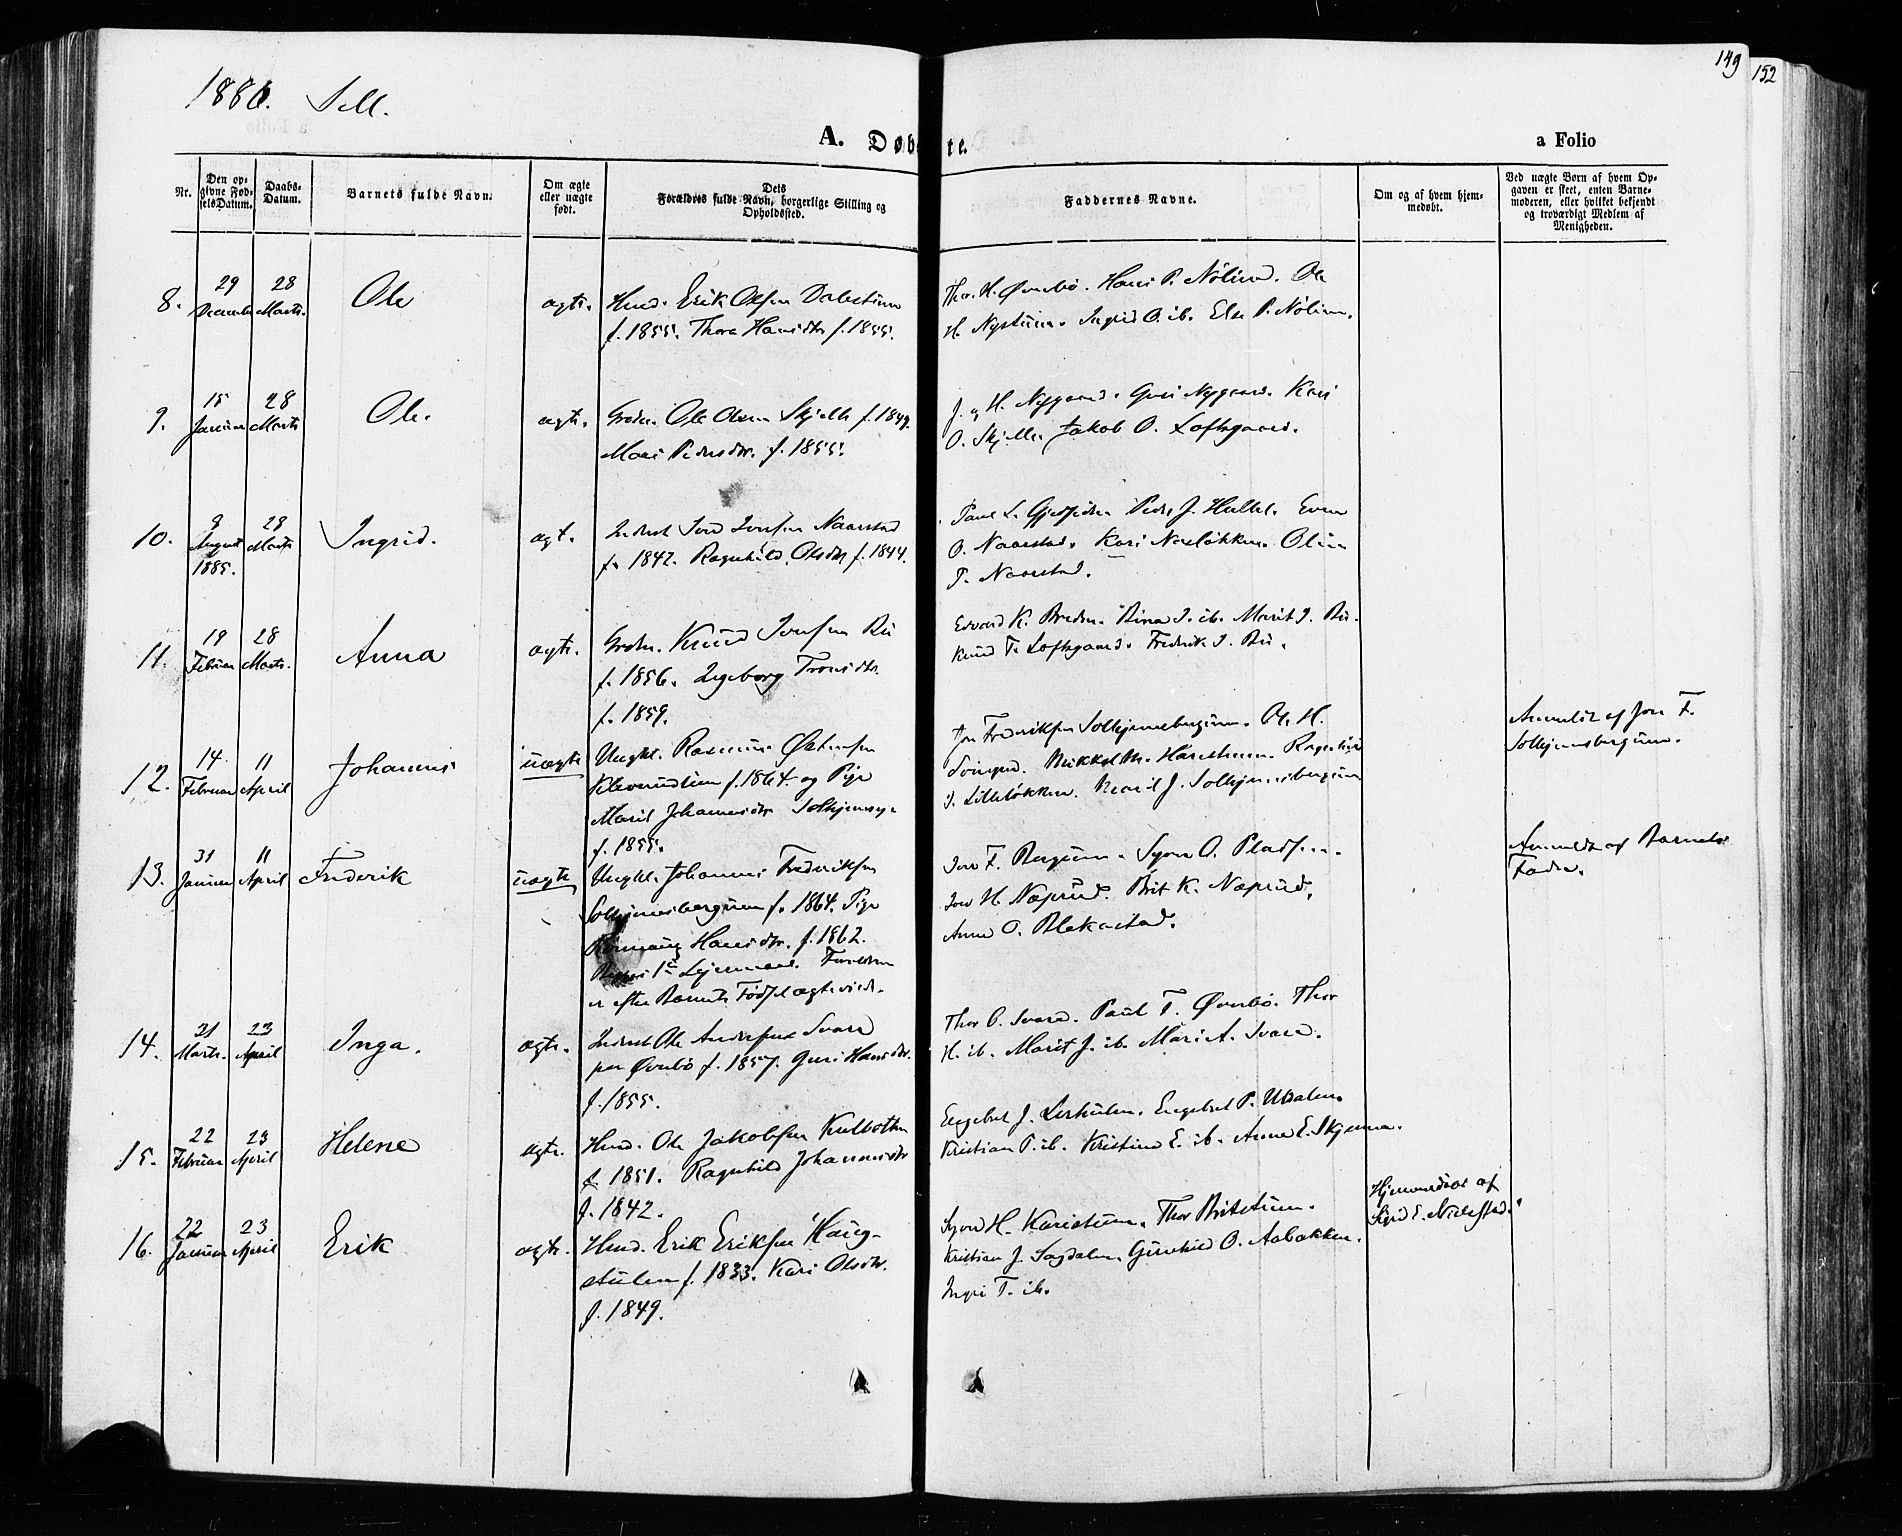 149
152
1886. Sell.
A. Døbte.
a Folio
Nr.
Den op-
givne Fød-
selsDatum.
Daabs-
Datum.
Barnets fulde Navn.
Om ægte
eller uægte
født.
Dets
Forældres fulde Navn, borgerlige Stilling og
Opholdssted.
Faddernes Navne.
Om og af hvem hjem-
medøbt.
Ved uægte Børn af hvem Op-
gaven er skeet, enten Barne-
moderen, eller hvilket bekjendt
og troværdigt Medlem af
Menigheden.
8. 29 December 28 Marts. Ole ægte. Husm. Erik Olsen
f. 1855. Thora Hansdtr f. 1855.
Thor. H. Øvrebø. Hans P. Nölien. Ole
H. Nystuen. Ingrid O. ib. Else P. Nölien.
9. 15 Januar 28 Marts Ole. ægte. Grdbr. Ole Olsen Skjelle f. 1849.
Mari Pedersdtr. f. 1855.
J. og H. Nygaard. Guri Nygaard. Kari
O. Skjelle. Jakob O. Loftsgaard.
10. 8 August 1885. 28 Marts Ingrid. ægt. Inderst Iver Iversen Naarstad
f. 1842. Ragnhild Olsdtr f. 1844.
Paul L. Peder J. Even
O. Naarstad. Kari Oline
P. Naarstad.
11. 19 Februar 28 Marts. Anna ægte. Grdbr. Knud Iversen Bu
f. 1856. Ingeborg Tronsdtr.
f. 1859.
Edvard K. Breden. Rina I. ib. Marit I. Bu.
Knud T. Loftsgaard. Frederik I. Bu.
12. 14. Februar 11 April Johannes uægte Ungkl. Rasmus Østensen
f. 1864. og Pige
Marit Johannesdtr
f. 1855.
Jon Frederiksen Solhjemsbergum. Ole H.
Mikkel M.
Marit J. Solhjemsbergum
Anmeldt af Jon F.
Solhjemsbergum.
13. 31 Januar 11 April Frederik uægte Ungkl. Johannes Frederiksen
Solhjemsbergum f. 1864. Pige
Hansdtr. f. 1862.
Lejermaal. Forældrene
er efter Barnets Fødsel ægteviede.
Jon F. Bergum. Syver O.
Iver H. Næprud. Brit K. Næprud.
Anne O. Blekastad.
Anmeldt af Barnets
Fader.
14. 31 Marts. 23 April Inga. ægte. Inderst Ole Andersen Svare
paa Øvrebø f. 1857. Guri Hansdtr.
f. 1855.
Thor O. Svare. Paul T. Øvrebø. Thor
H. ib. Marit J. ib. Mari A. Svare.
15. 22 Februar 23 April Helene ægte. Husm. Ole Jakobsen
f. 1851. Ragnhild Johannesdtr
f. 1842.
Engebret J. Engebret P.
Kristian P. ib. Kristine E. ib. Anne E. Skjenna.
16. 22 Januar 23 April Erik ægte. Husm. Erik Eriksen Haug-
stulen f. 1833. Kari Olsdtr.
f. 1849.
Syver H. Karistuen. Thor Britstuen.
Kristian J. Sagdalen. Gunhild O. Aabakken.
Ingri T. ib.
Hjemmedøbt af
Sigrid E.